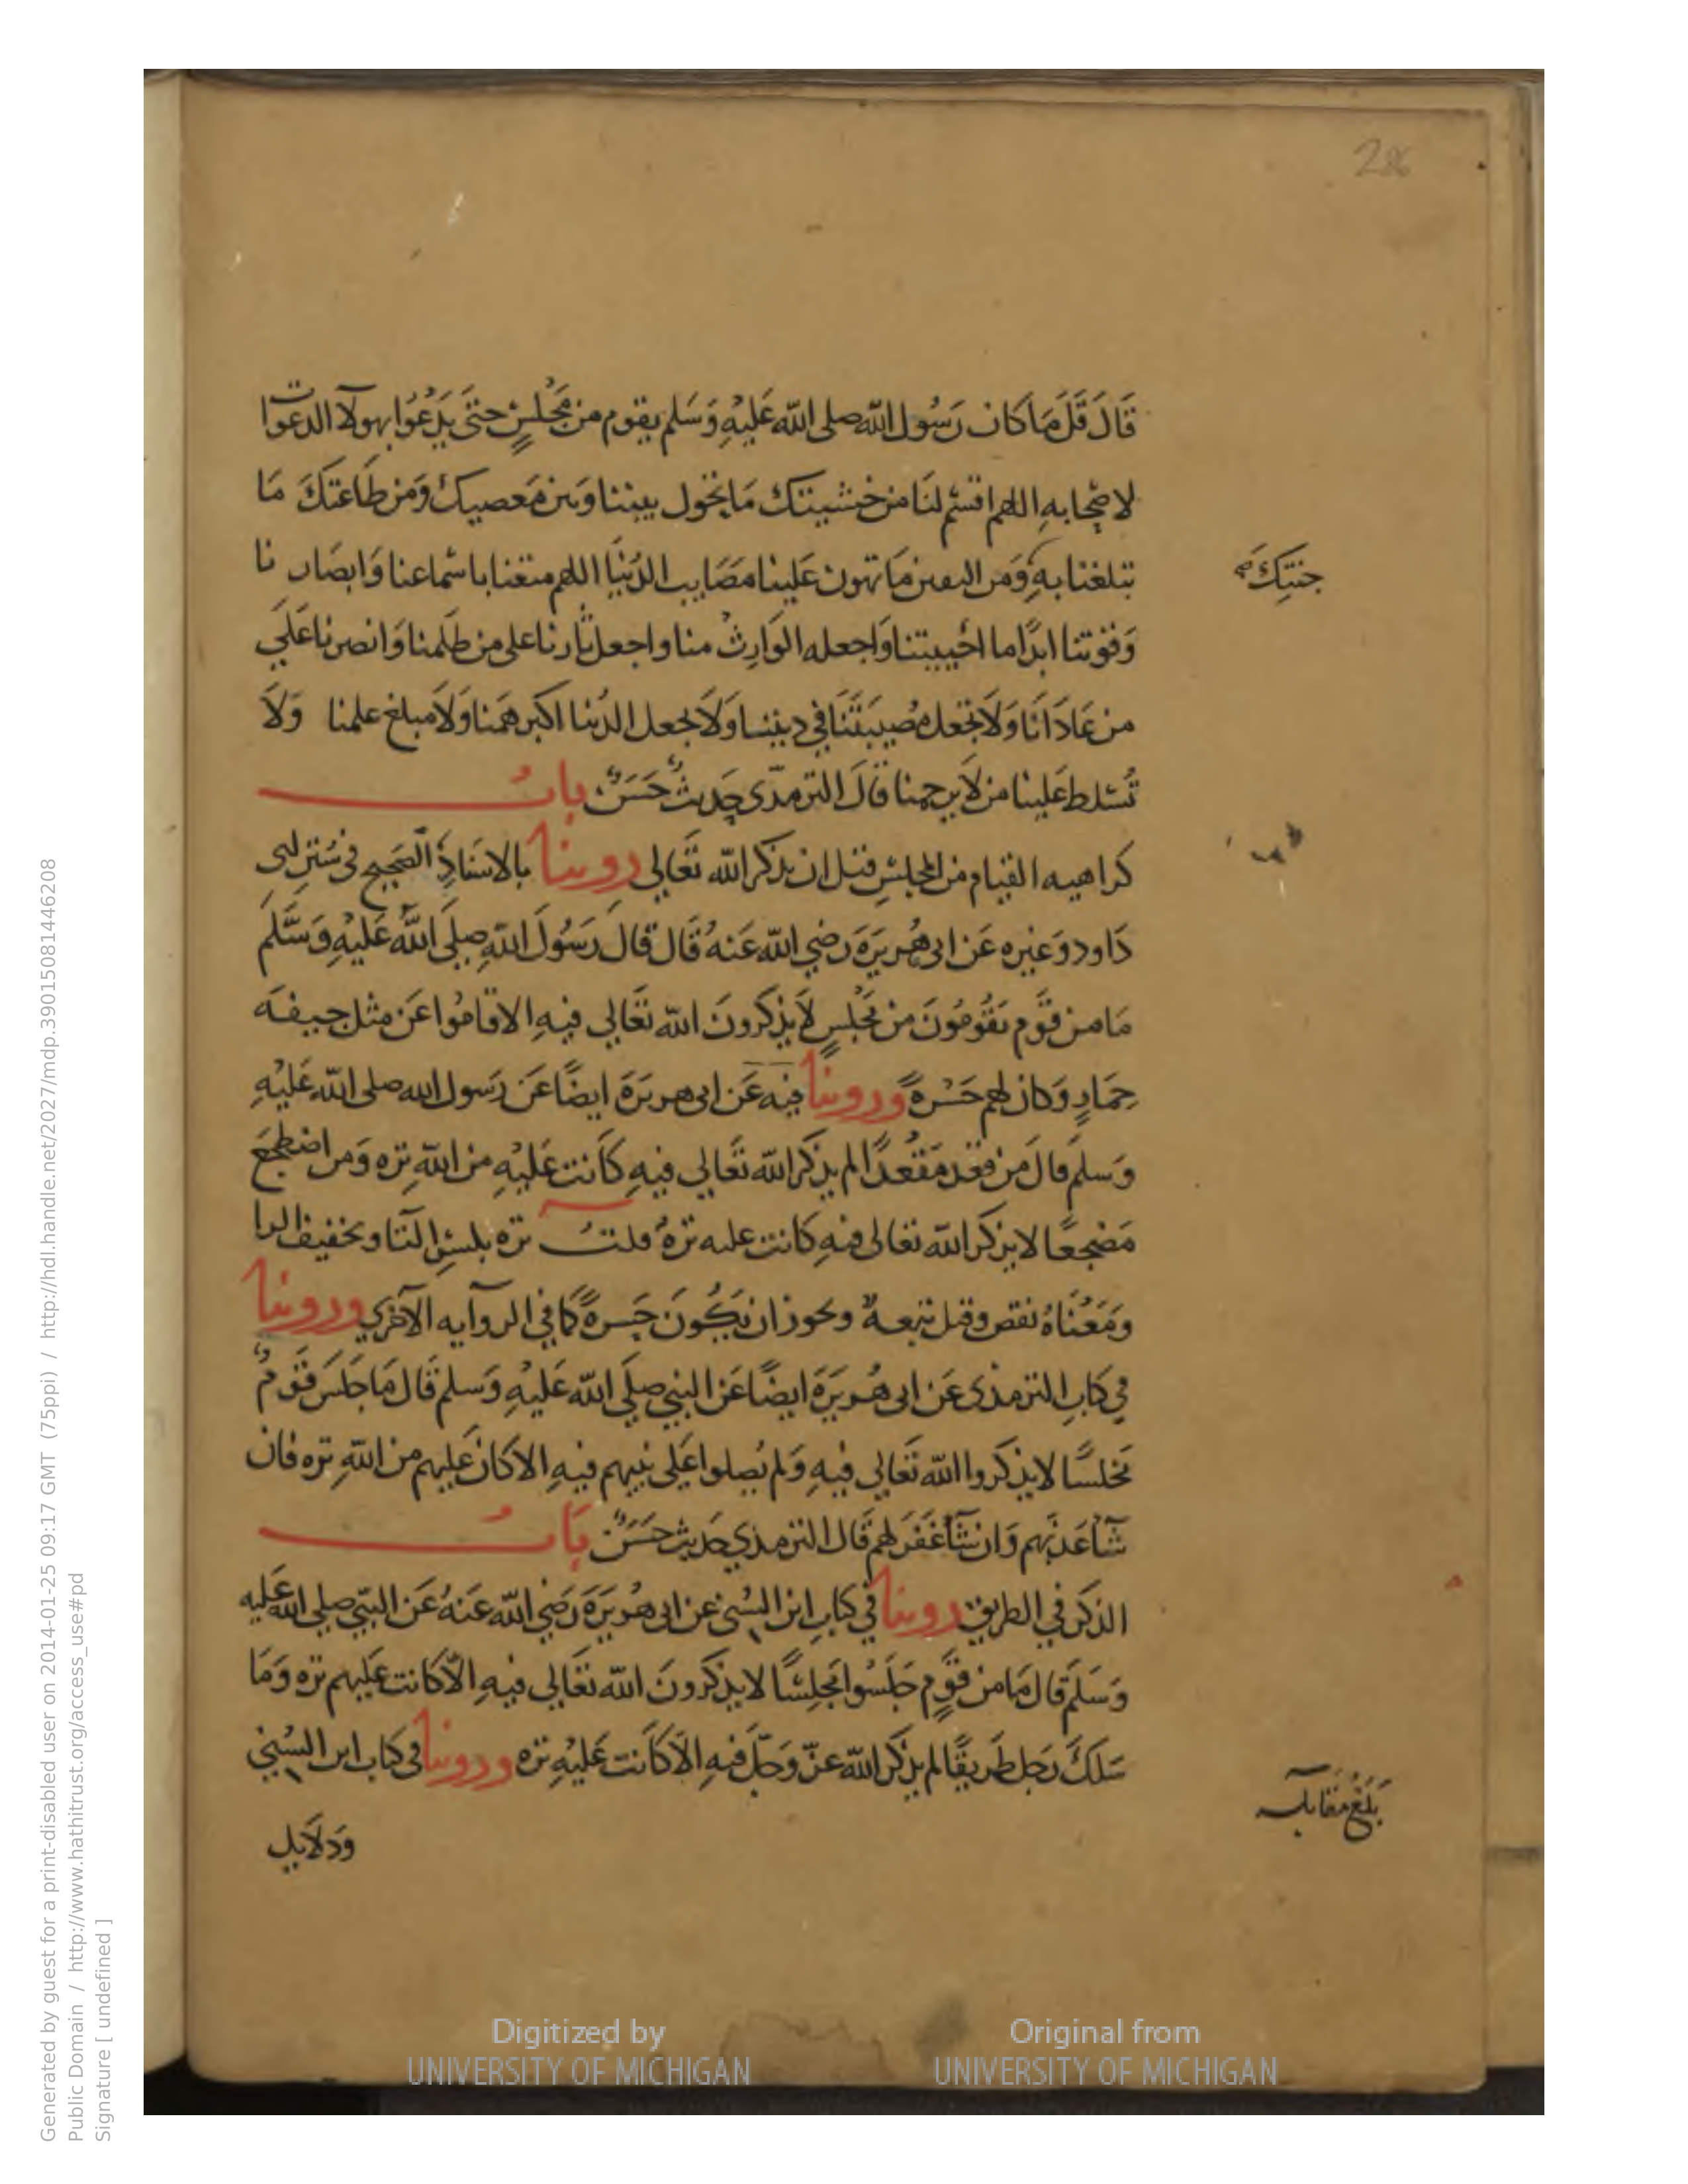 286
قَالَ قَلَّ مَا كَانَ رَسُول اللّه صلى اللّه عَلَيْهِ وَسَلم يقوم من مَجْلسٍ حتى يَدْعُوَا بهولآ الدعوات
لاصْحابهِ اللهم اقسْم لنَا من خشيتك مَا يحُول بيننا وَبين مَعصيك وَمن طَاعتكَ مَا
تبلغنا بهِ وَمن اليقين مَا تهون عَلينا مَصَايب الدُنيَا اللهم متعنا باسْماعنا وَابصَار نا
جنتِكَ صح
وَقوتنا ابدًا ما احْييتنا وَاجعله الوَارثْ منا واجعل ثارنا على من ظلَمنا وَانصرنا عَلَي
من عَادَانَا وَلَا تجعل مصيبَتَنَا في ديننا وَلَا تجعل الدُنيا اكبر همَنا وَلَا مبلغ علمنا وَلَا
تُسَلط عَلينا من لَا يرحمنا قَالَ الترمذّى حَديثٌ حَسَنٌ بابُ
كراهيه القيام من المجلسِ قبل ان يذكر اللّه تَعَالي روينا بالاسنَادِ الصَحيح في سُنَنِ ابى
دَاود وَغيره عَن ابى هُريرَةَ رَضي اللّه عَنهُ قَالَ قال رَسُولَ اللّهِ صلى اللّهُ عَليْهِ وَسَّلَم
مَا من قَوم يَقُومُونَ من مجْلسٍ لَا يَذكُرونَ اللّه تعَالي فيهِ الا قامُوا عَن مثل جيفَه
حِمَارٍ وَكان لهم حَسْرةً وروينا فيه عَن ابى هريرَةَ ايضًا عَن رَسول الله صلى اللّه عَليْهِ
وَسلم قالَ من قعَد مَقْعَدًا لم يذكر اللّه تَعَالي فيهِ كاَنت عَليْهِ من اللّهِ تره وَمن اضطجَعَ
مَضْجعًا لا يذكر اللّه تعَالى فيهِ كانت عليه ترهٌ قلتُ تره بكسرِ التَا وتخفيف الرا
وَمَعْنَاهُ نقص وقيل تبعهٌ ويجوز ان يَكُونَ حَسرةً كما في الروآيه الآخري وروينا
في كتابِ الترمذى عَن ابى هُريَرَةَ ايضًا عَن النبي صلَي اللّه عَليْهِ وَسلم قَالَ مَا جَلَسَ قَوْمٌ
مَجلسًا لا يذكروا اللّه تَعَالي فيهِ وَلم يُصلوا عَلى نبيهم فيهِ الا كانَ عَليهم من اللّهِ تره فان
شَآ عَذبَهم وَان شَآ غفَرَ لهم قَالَ الترمذي حَديث حسَنٌ بَابُ
الذكر في الطريق روينا في كتابِ ابن السُني عن ابى هُريَرَةَ رَضي اللّه عَنهُ عَن النبّي صلى الله عَليه
وَسَلَم قالَ مَا من قَومٍ جَلَسُوا مجلِسًا لا يذكرونَ اللّه تعَالي فيهِ الّا كانت عَليهم تره وَمَا
سَلكَ رَجل طَريقًا لم يذكر اللّه عزّ وَجَلّ فيهِ الَا كاَنت عَليْهِ تره وروينا في كتاب ابن السُني
بَلَغَ مقَابلَه
وَدلَايل
Generated by guest for a print-disabled user on 2014-01-25 09:17 GMT (75ppi) / http://hdl.handle.net/2027/mdp.39015081446208
Public Domain / http://www.hathitrust.org/access_use#pd
Signature [ undefined ]
Digitized by
UNIVERSITY OF MICHIGAN
Original from
UNIVERSITY OF MICHIGAN